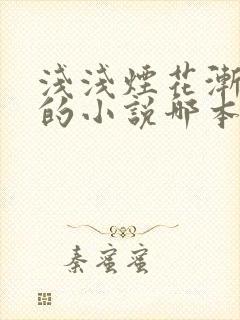 淺淺煙花漸
的小說那本
秦蜜蜜